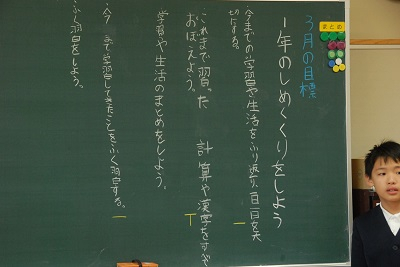 まとめ
3月の目標
1年のしめくくりをしよう
・今までの学習や生活をふり返り、一日一日を大
切にする。
一
・これまで習った 計算や漢字をすべ
おぼえよう。
T
学習や生活のまとめをしよう。
・今まで学習してきたことをふく習する。
一
ふく習をしよう。